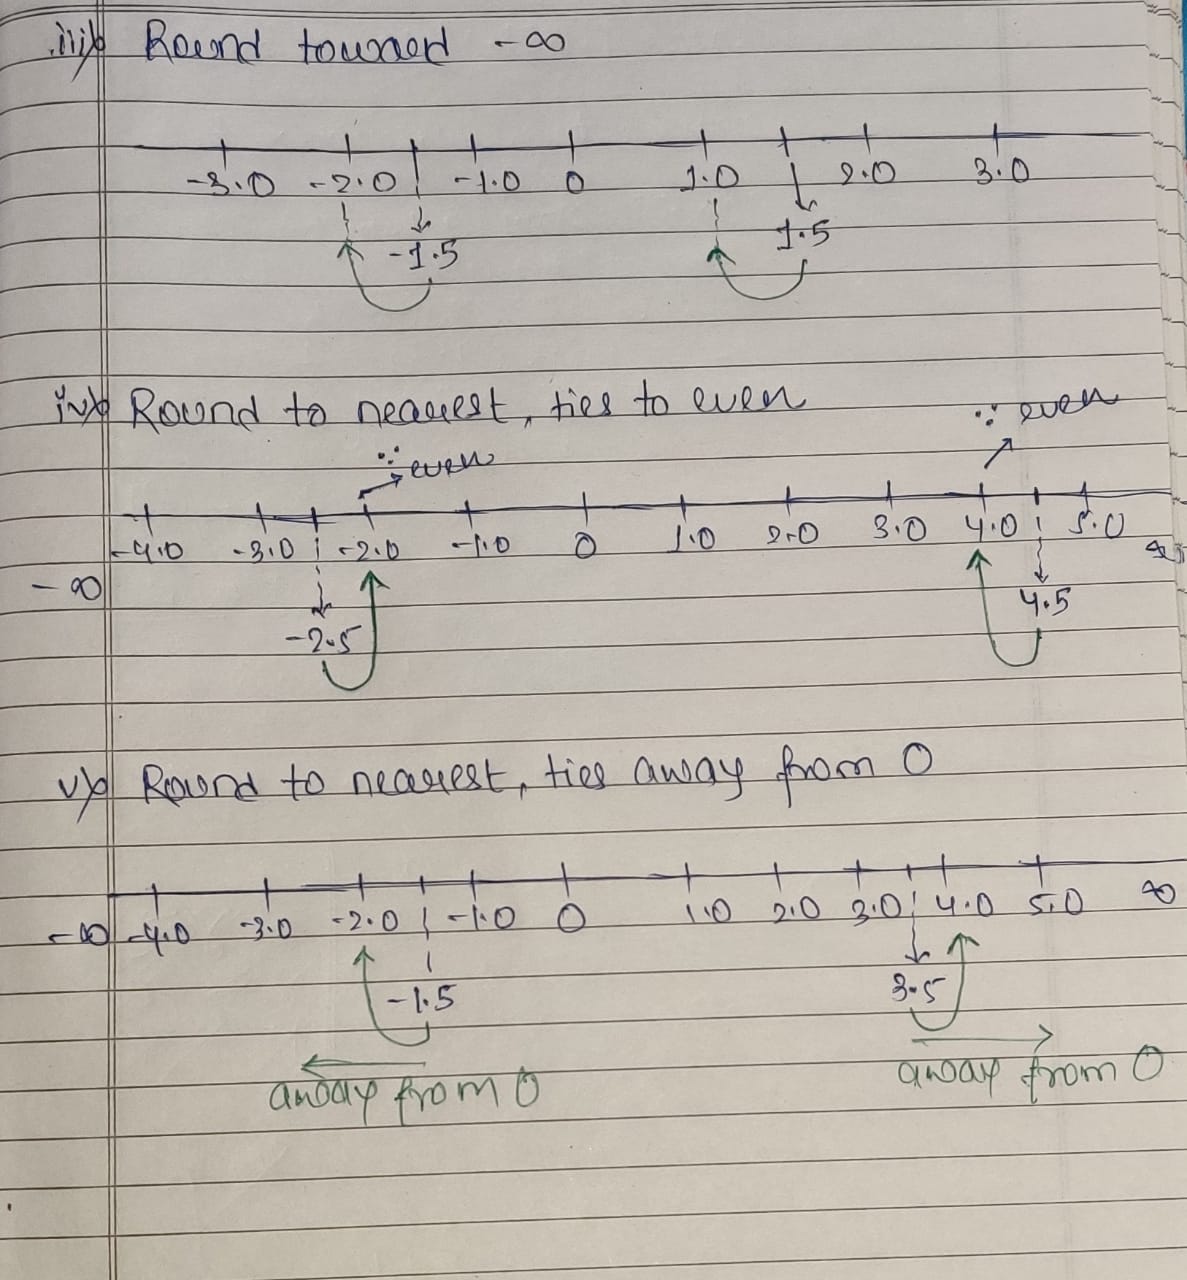 iii) Round toward -∞
-3.0 -2.0 -1.0 0 1.0 2.0 3.0
-1.5 1.5
iv) Round to nearest, ties to even
∵ even
∵ even
-4.0 -3.0 -2.0 -1.0 0 1.0 2.0 3.0 4.0 5.0
-∞ ∞
-2.5 4.5
v) Round to nearest, ties away from 0
-∞ -4.0 -3.0 -2.0 -1.0 0 1.0 2.0 3.0 4.0 5.0 ∞
-1.5 3.5
away from 0 away from 0